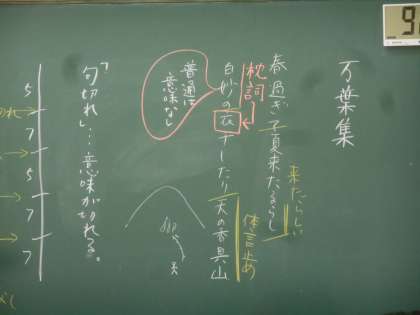 万葉集
来たらしい
春過ぎて夏来たるらし
枕詞
白妙の衣干したり天の香具山
体言止め
普通は
意味なし
天
「句切れ」…意味が切れる。
5
7
5
7
7
9